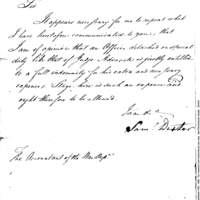 Sir
It appears necessary for me to repeat what
I have heretofore communicated to you: that
I am of opinion that an Officer detached on special
duty like that of Judge Advocate is justly entitled
to a full indemnity for his extra and necessary
expence. Stage hire is such an expence and
ought therefore to be allowed.
I am &c
Sam. Dexter
The Accountant of the War Dept